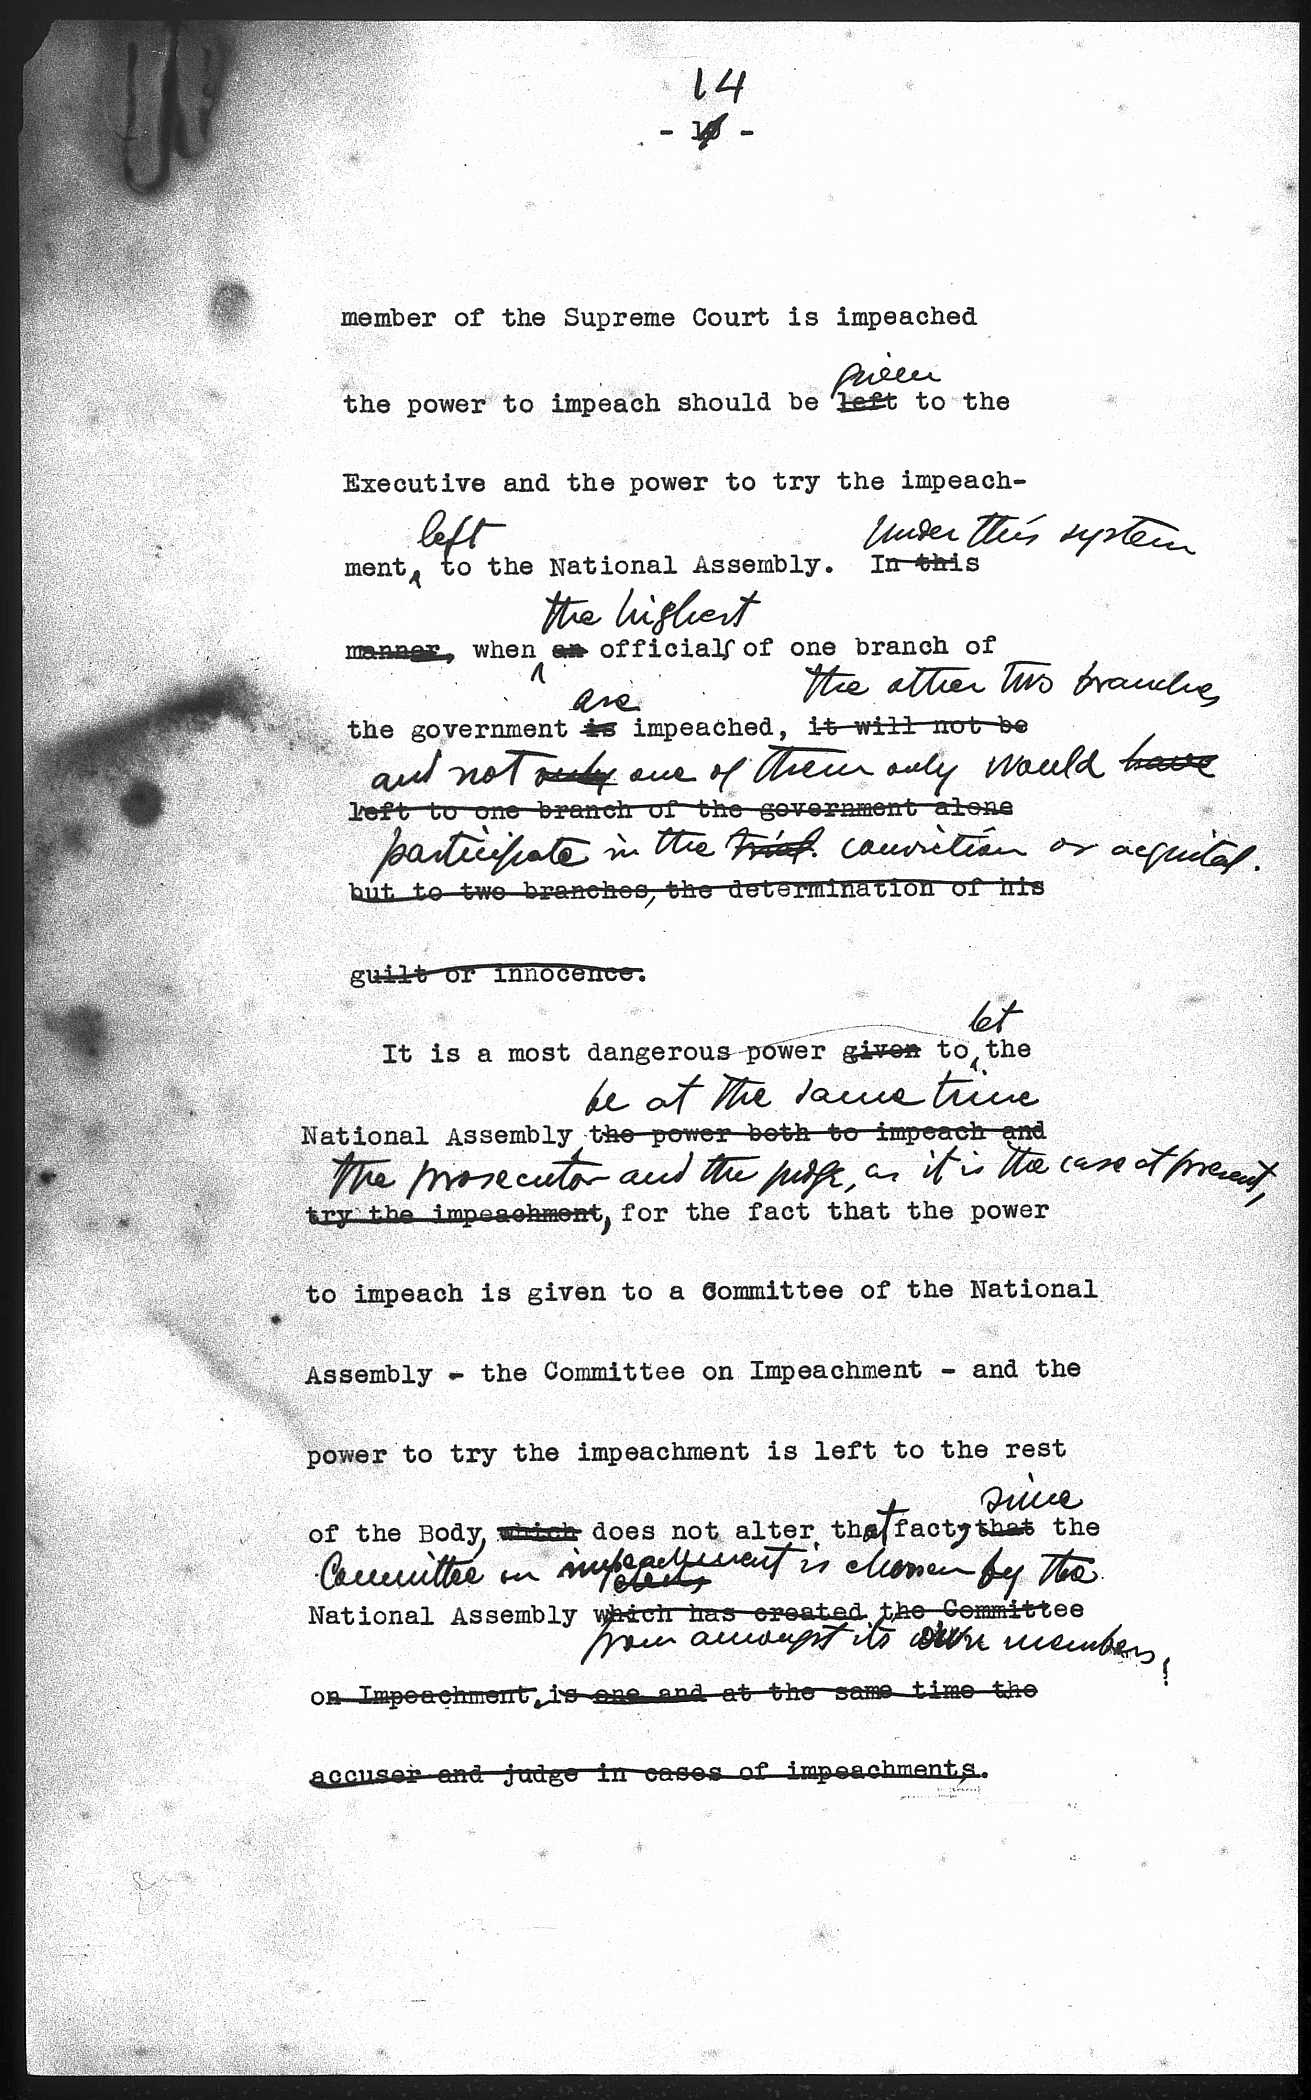 14
- 10 -
member of the Supreme Court is impeached
given
the power to impeach should be left to the
Executive and the power to try the impeach-
left Under this system
ment, to the National Assembly. In this
the highest
manner, when an officials of one branch of
are the other two branches
the government is impeached, it will not be
and not only one of them only would have
left to one branch of the government alone
participate in the trial. conviction or acquital.
but to two branches, the determination of his
guilt or innocence.
let
It is a most dangerous power given to the
be at the same time
National Assembly the power both to impeach and
the prosecutor and the judge, as it is the case at present,
try the impeachment, for the fact that the power
to impeach is given to a Committee of the National
Assembly - the Committee on Impeachment - and the
power to try the impeachment is left to the rest
since
of the Body, which does not alter that fact, that the
Committee on impeachment is chosen by the
National Assembly which has created the Committee
from amongst its own members.
on Impeachment, is one and at the same time the
accuser and judge in cases of impeachments.